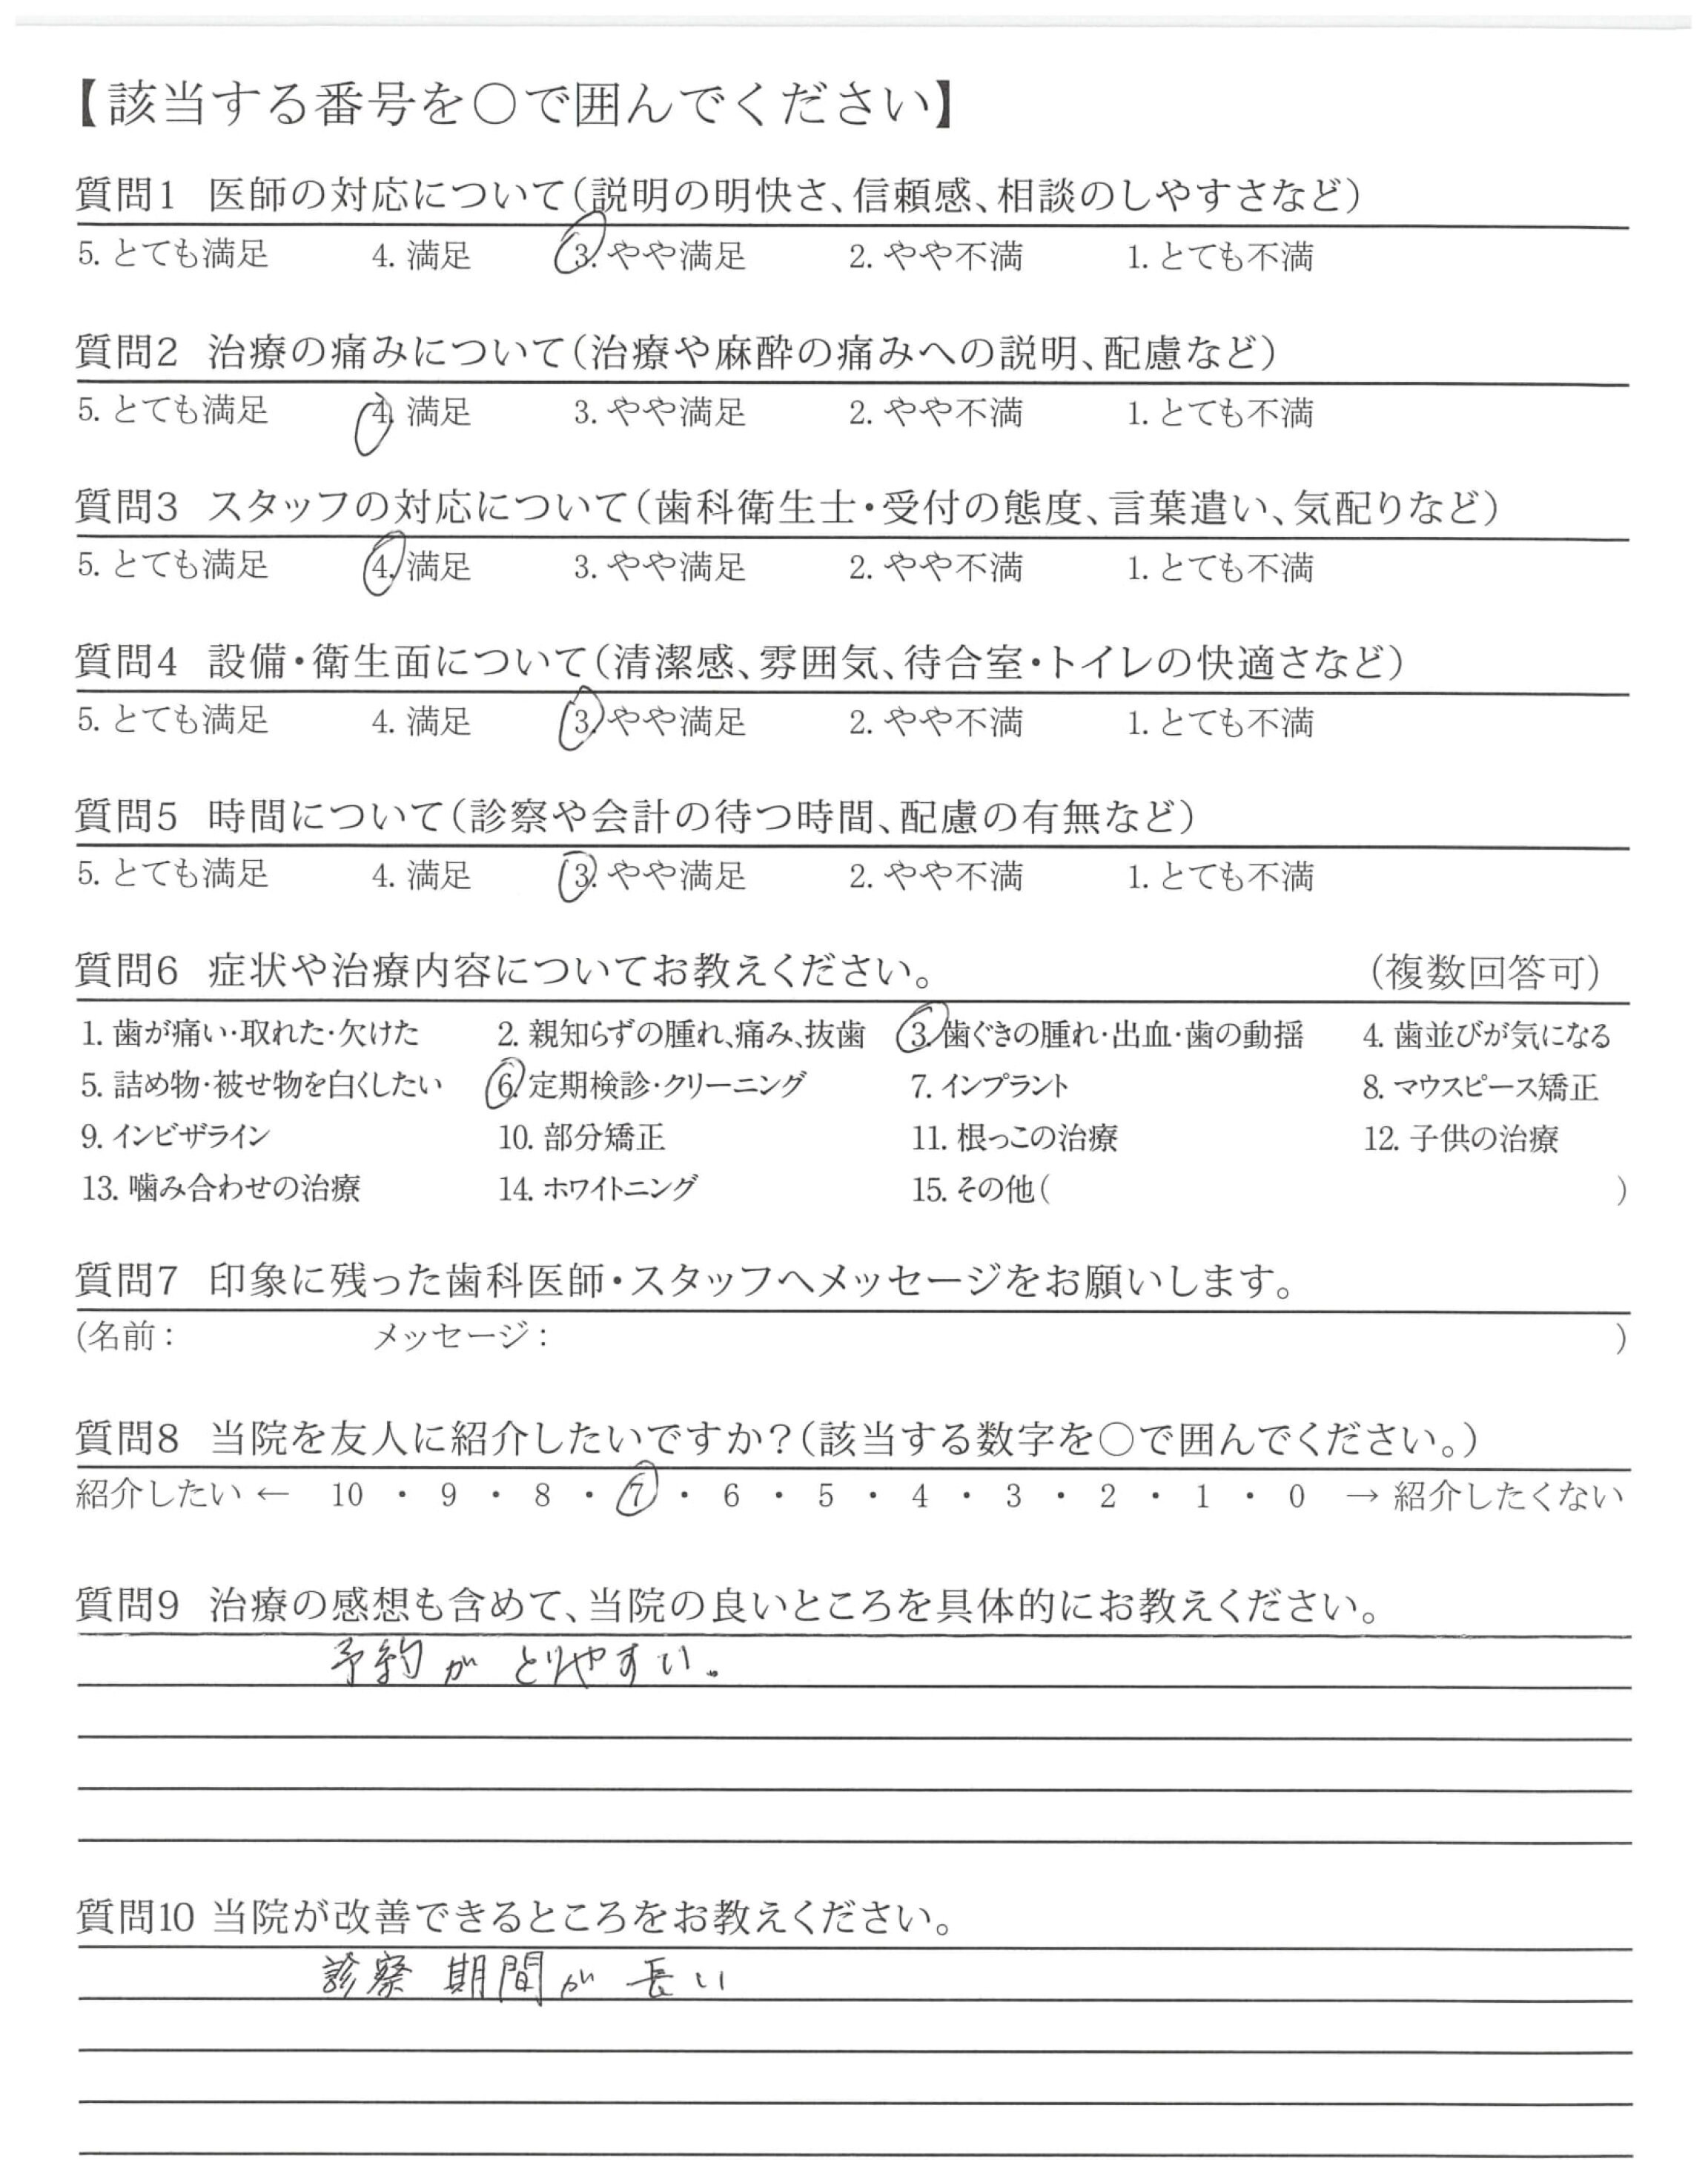 【該当する番号を〇で囲んでください】
質問1 医師の対応について(説明の明快さ、信頼感、相談のしやすさなど)
5. とても満足 4. 満足 3. やや満足 2. やや不満 1. とても不満
質問2 治療の痛みについて(治療や麻酔の痛みへの説明、配慮など)
5. とても満足 4. 満足 3. やや満足 2. やや不満 1. とても不満
質問3 スタッフの対応について(歯科衛生士・受付の態度、言葉遣い、気配りなど)
5. とても満足 4. 満足 3. やや満足 2. やや不満 1. とても不満
質問4 設備・衛生面について(清潔感、雰囲気、待合室・トイレの快適さなど)
5. とても満足 4. 満足 3. やや満足 2. やや不満 1. とても不満
質問5 時間について(診察や会計の待つ時間、配慮の有無など)
5. とても満足 4. 満足 3. やや満足 2. やや不満 1. とても不満
質問6 症状や治療内容についてお教えください。 (複数回答可)
1. 歯が痛い・取れた・欠けた 2. 親知らずの腫れ、痛み、抜歯 3. 歯ぐきの腫れ・出血・歯の動揺 4. 歯並びが気になる
5. 詰め物・被せ物を白くしたい 6. 定期検診・クリーニング 7. インプラント 8. マウスピース矯正
9. インビザライン 10. 部分矯正 11. 根っこの治療 12. 子供の治療
13. 噛み合わせの治療 14. ホワイトニング 15. その他( )
質問7 印象に残った歯科医師・スタッフへメッセージをお願いします。
(名前: メッセージ: )
質問8 当院を友人に紹介したいですか?(該当する数字を〇で囲んでください。)
紹介したい ← 10 ・ 9 ・ 8 ・ 7 ・ 6 ・ 5 ・ 4 ・ 3 ・ 2 ・ 1 ・ 0 → 紹介したくない
質問9 治療の感想も含めて、当院の良いところを具体的にお教えください。
予約が とりやすい。
質問10 当院が改善できるところをお教えください。
診察 期間が 長い